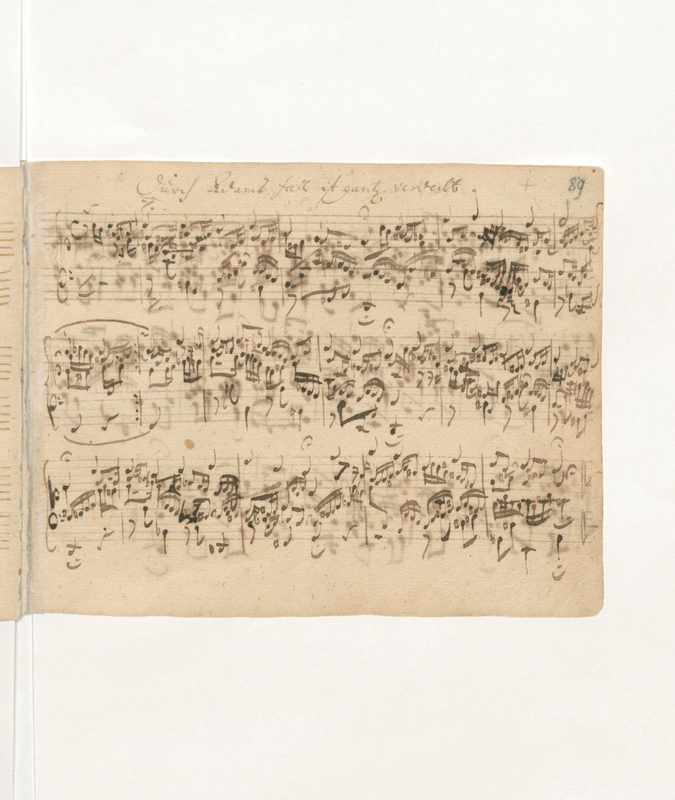 Durch Adams fall ist gantz verderbt.
89